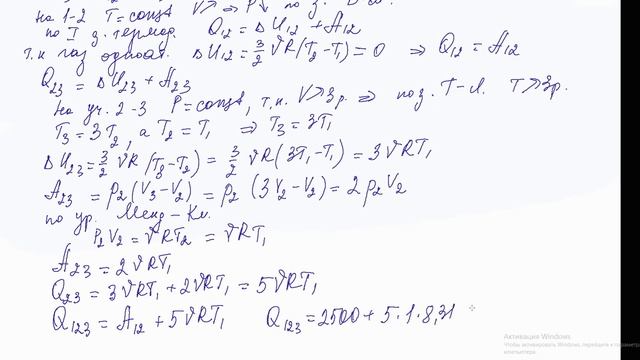 На 1-2 T = const V↗ ⇒ P↓ по з.
по I з. термод. Q₁₂ = ΔU₁₂ + A₁₂
т.к газ одноат. ΔU₁₂ = 3/2 νR(T₂-T₁) = 0 ⇒ Q₁₂ = A₁₂
Q₂₃ = ΔU₂₃ + A₂₃
На уч. 2-3 P = const, т.к. V↗3р. ⇒ по з. Г-Л. T↗3р.
T₃ = 3T₂, а T₂ = T₁ ⇒ T₃ = 3T₁
ΔU₂₃ = 3/2 νR(T₃-T₂) = 3/2 νR(3T₁-T₁) = 3νRT₁
A₂₃ = p₂(V₃-V₂) = p₂(3V₂-V₂) = 2p₂V₂
по ур. Менд-Кл.
P₂V₂ = νRT₂ = νRT₁
A₂₃ = 2νRT₁
Q₂₃ = 3νRT₁ + 2νRT₁ = 5νRT₁
Q₁₂₃ = A₁₂ + 5νRT₁ Q₁₂₃ = 2500 + 5·1·8,31
Активация Windows
Чтобы активировать Windows, перейдите к параметрам
компьютера.